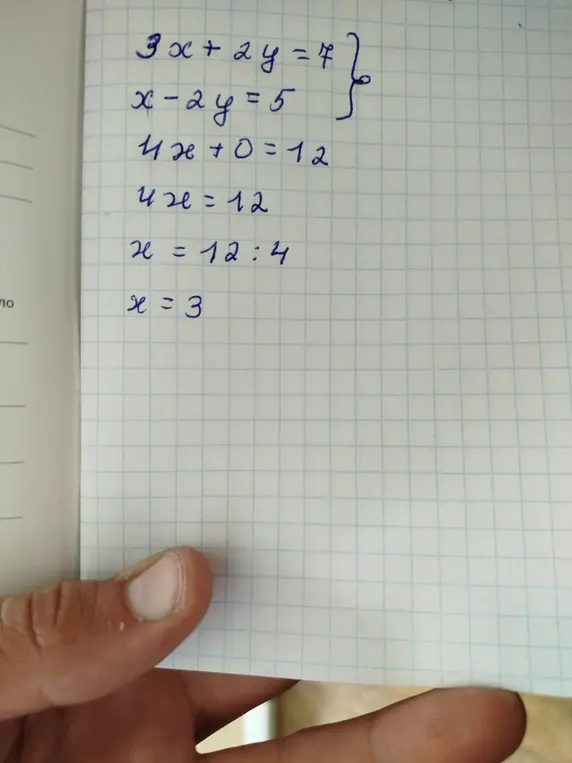 3x + 2y = 7 }
x - 2y = 5
4x + 0 = 12
4x = 12
x = 12 : 4
ло
x = 3